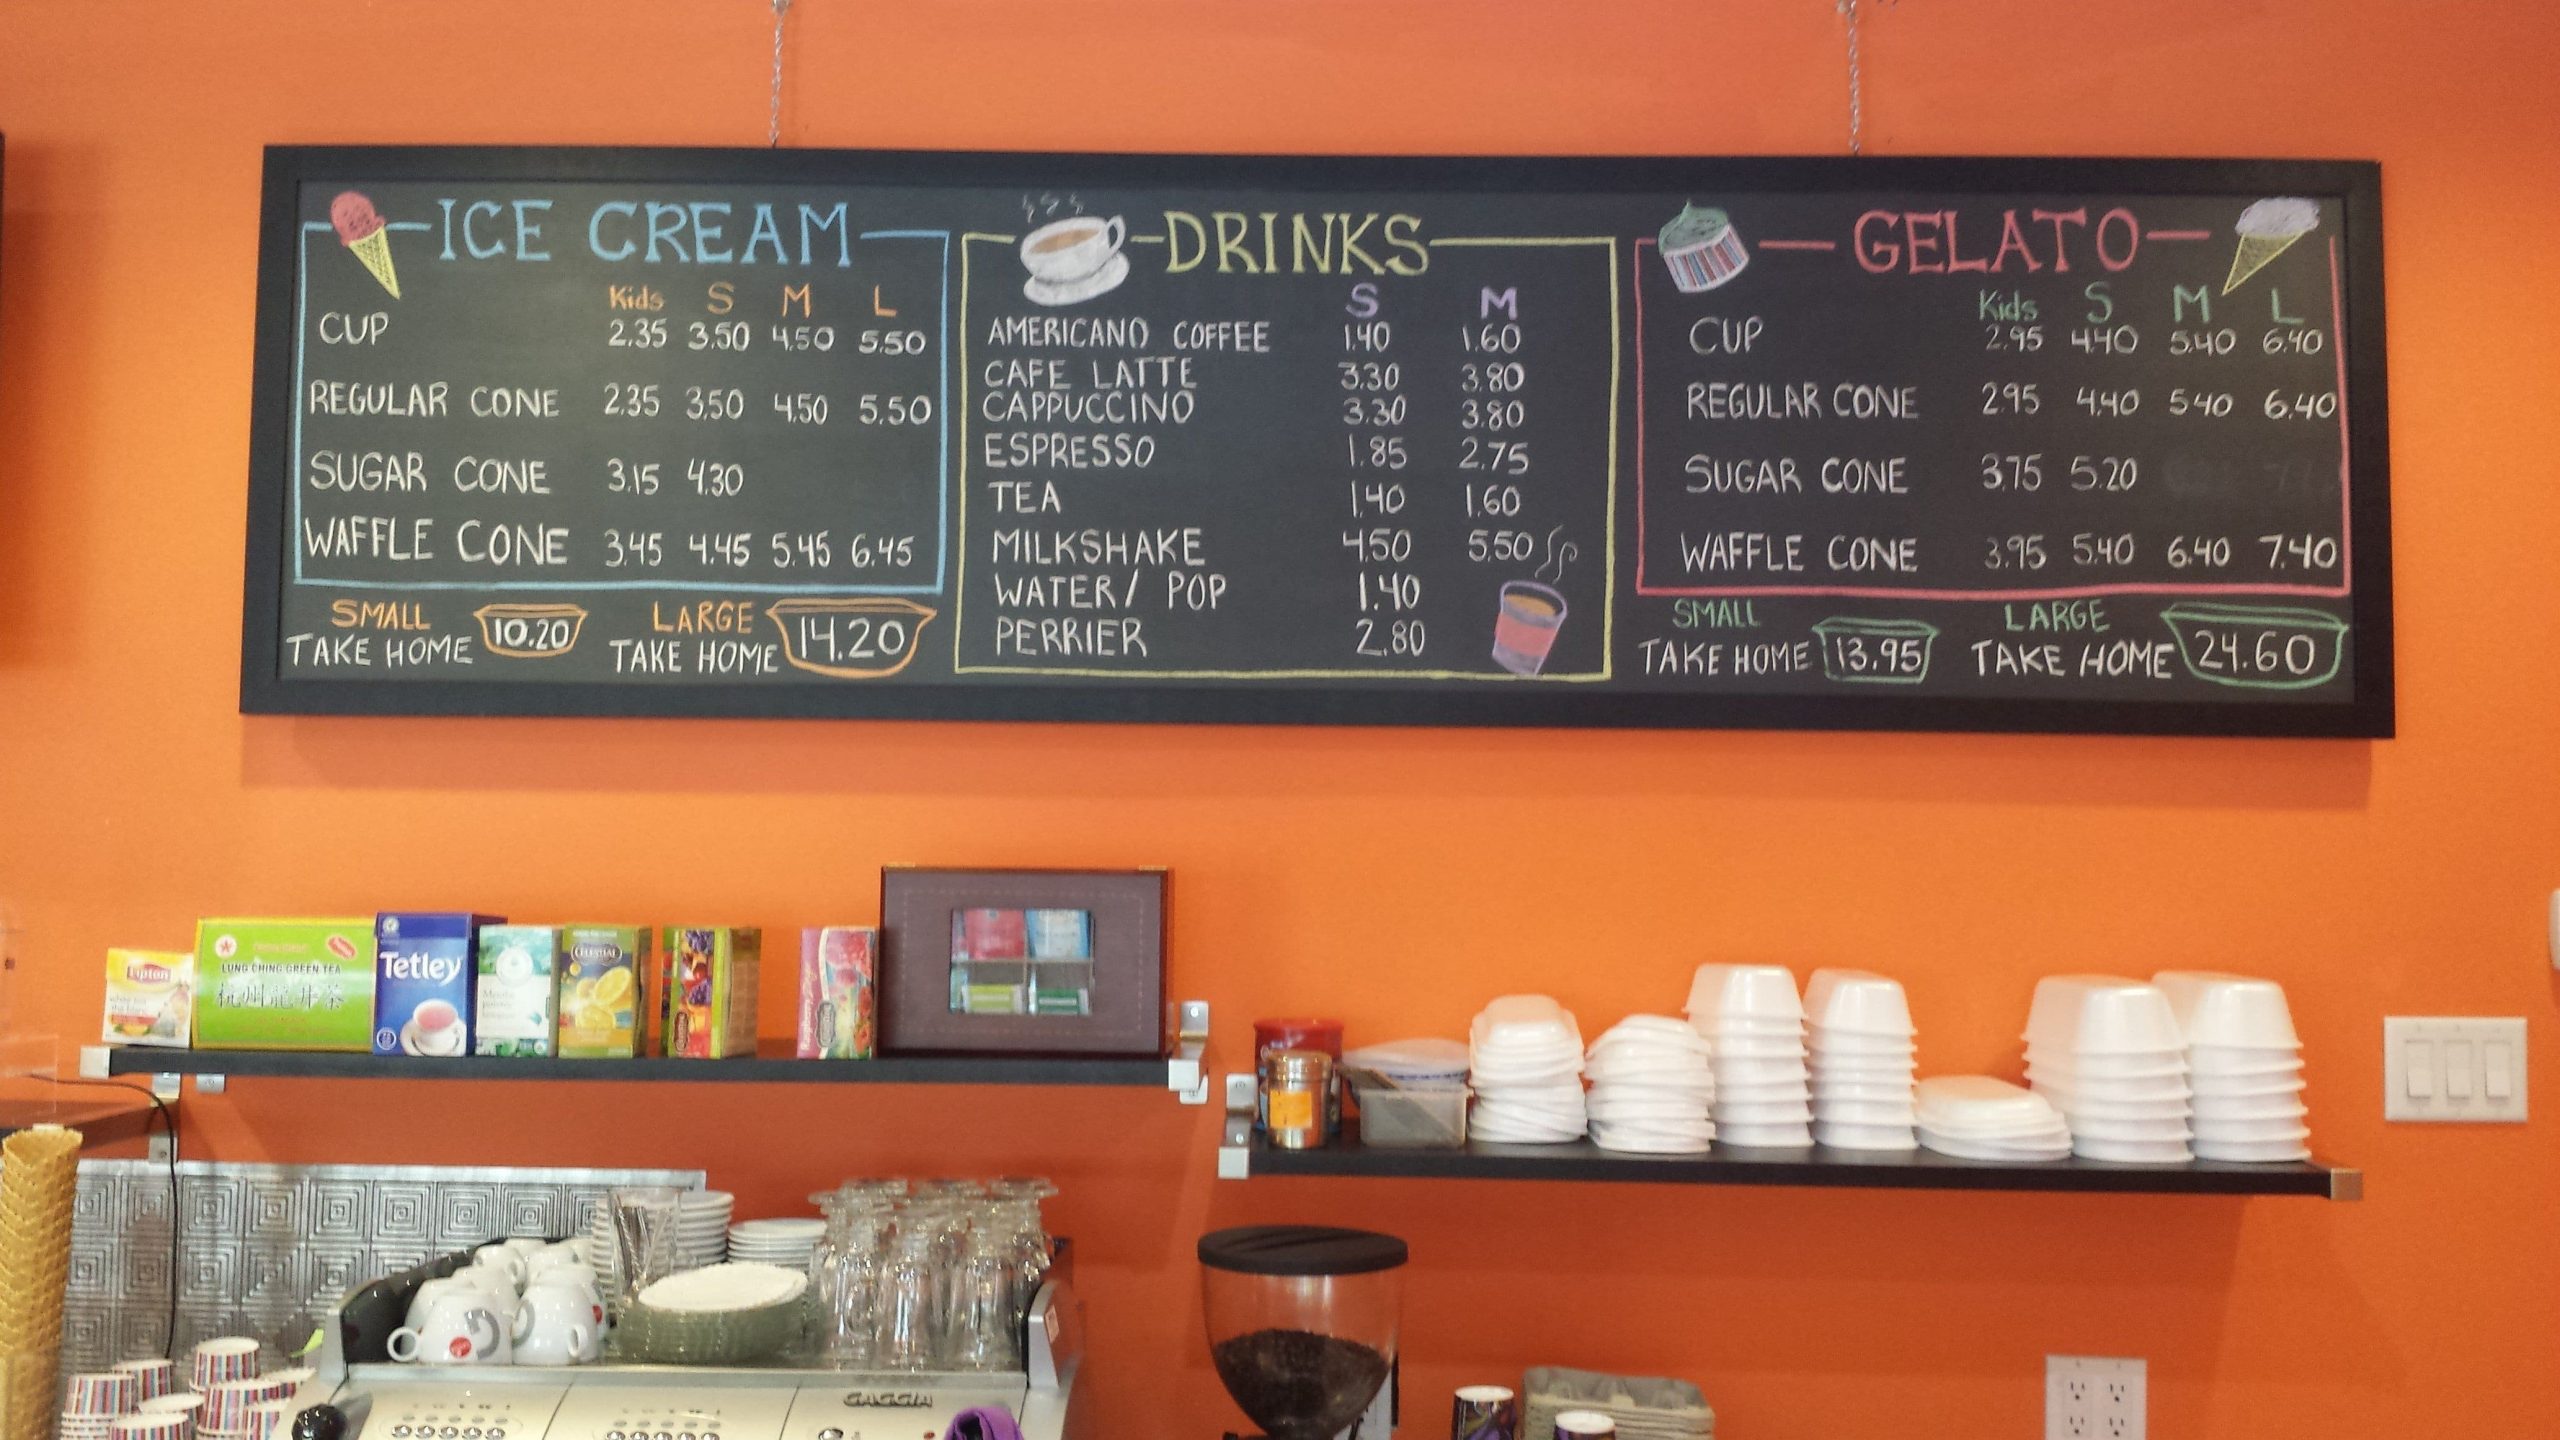 ICE CREAM
Kids S M L
CUP 2.35 3.50 4.50 5.50
REGULAR CONE 2.35 3.50 4.50 5.50
SUGAR CONE 3.15 4.30
WAFFLE CONE 3.45 4.45 5.45 6.45
SMALL
TAKE HOME 10.20
LARGE
TAKE HOME 14.20
DRINKS
S M
AMERICANO COFFEE 1.40 1.60
CAFE LATTE 3.30 3.80
CAPPUCCINO 3.30 3.80
ESPRESSO 1.85 2.75
TEA 1.40 1.60
MILKSHAKE 4.50 5.50
WATER/ POP 1.40
PERRIER 2.80
GELATO
Kids S M L
CUP 2.95 4.40 5.40 6.40
REGULAR CONE 2.95 4.40 5.40 6.40
SUGAR CONE 3.75 5.20
WAFFLE CONE 3.95 5.40 6.40 7.40
SMALL
TAKE HOME 13.95
LARGE
TAKE HOME 24.60
Lipton
white tea
LUNG CHING GREEN TEA
杭州龍井茶
Tetley
CELESTIAL
Raspberry
GAGGIA